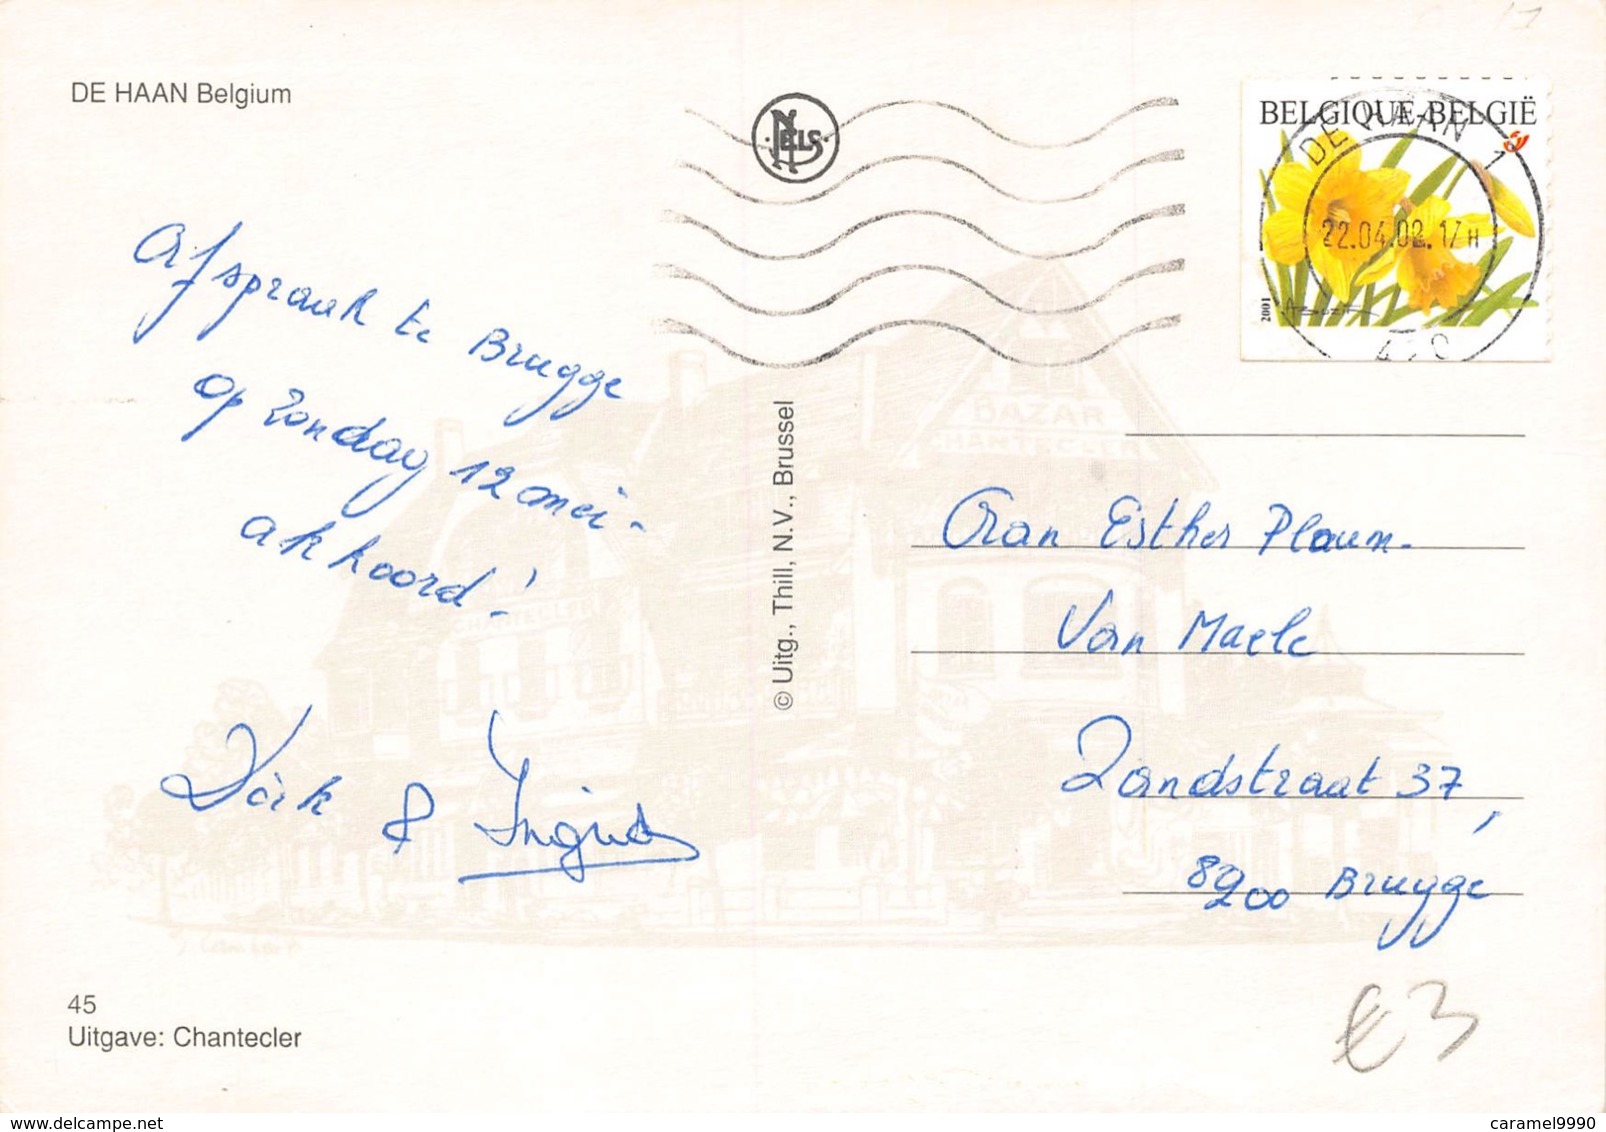 DE HAAN Belgium
NELS
BELGIQUE-BELGIË
DE HAAN 1
22.04.02. 17H
2001
Afspraak te Brugge
op zondag 12 mei -
akkoord!
Dirk & Ingrid
© Uitg., Thill, N.V., Brussel
BAZAR
CHANTECLER
CHANTECLER
Aan Esther Plaum-
Van Maele
Zandstraat 37,
8200 Brugge
45
Uitgave: Chantecler
€3
www.delcampe.net
caramel9990